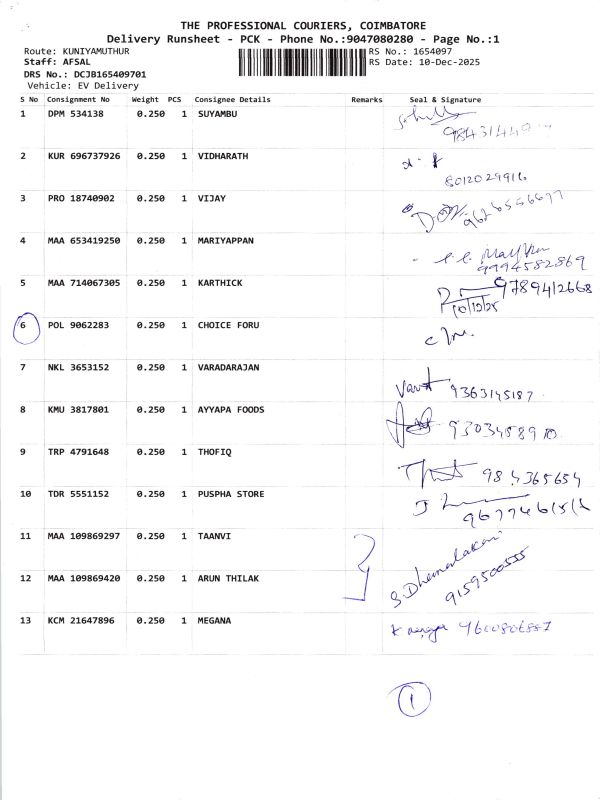 THE PROFESSIONAL COURIERS, COIMBATORE
Delivery Runsheet - PCK - Phone No.:9047080280 - Page No.:1
Route: KUNIYAMUTHUR RS No.: 1654097
Staff: AFSAL RS Date: 10-Dec-2025
DRS No.: DCJB165409701
Vehicle: EV Delivery
S No Consignment No Weight PCS Consignee Details Remarks Seal & Signature
1 DPM 534138 0.250 1 SUYAMBU
98431440
2 KUR 696737926 0.250 1 VIDHARATH
8012029916
3 PRO 18740902 0.250 1 VIJAY
4 MAA 653419250 0.250 1 MARIYAPPAN
9994582869
5 MAA 714067305 0.250 1 KARTHICK 9789412668
10/12/25
6 POL 9062283 0.250 1 CHOICE FORU
7 NKL 3653152 0.250 1 VARADARAJAN
9363145187
8 KMU 3817801 0.250 1 AYYAPA FOODS
9303458910
9 TRP 4791648 0.250 1 THOFIQ
984365654
10 TDR 5551152 0.250 1 PUSPHA STORE
11 MAA 109869297 0.250 1 TAANVI
12 MAA 109869420 0.250 1 ARUN THILAK
9159500555
13 KCM 21647896 0.250 1 MEGANA
9600806887
1